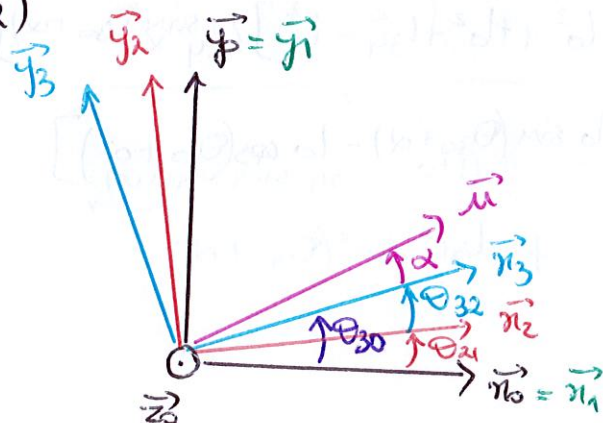 2)
y₃ y₂ y₀ = y₁
u
α
x₃
θ₃₂
x₂
θ₃₀ θ₂₁
z₀
x₀ = x₁